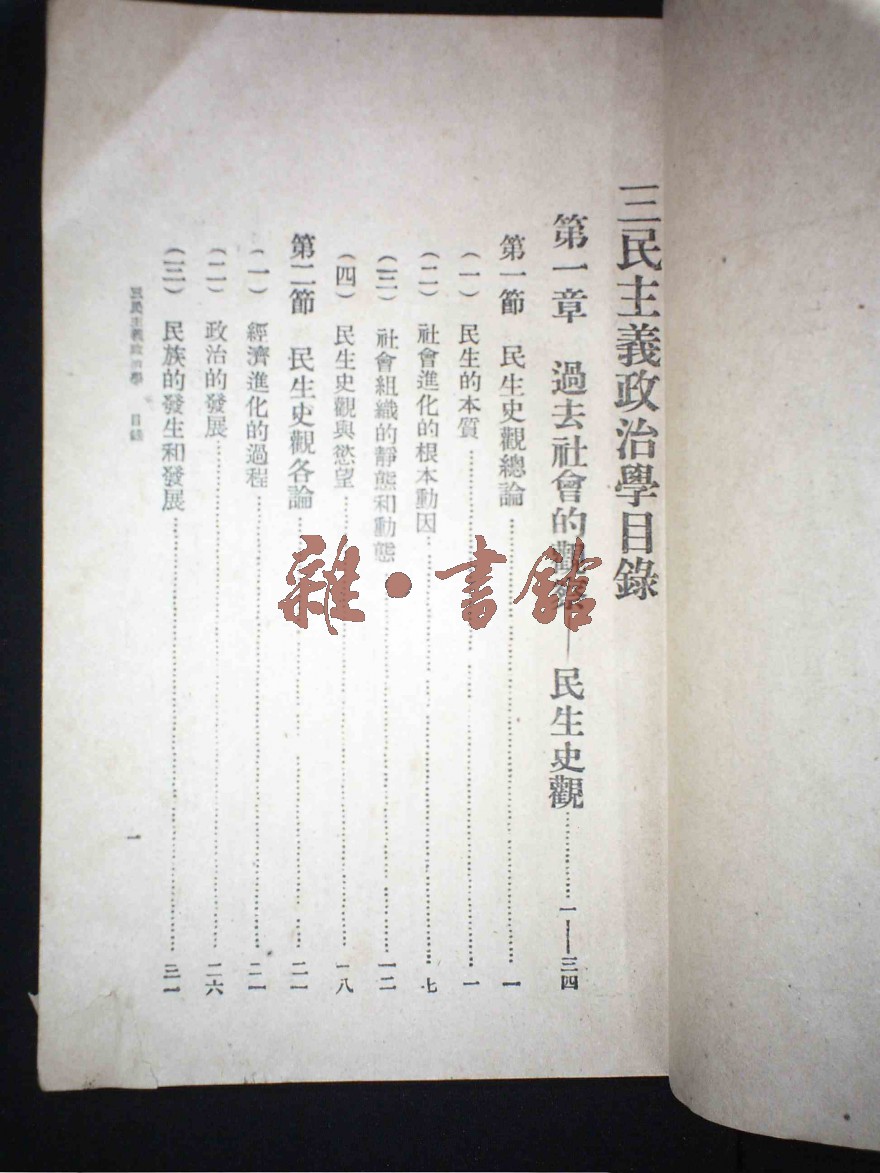 三民主義政治學目錄
第一章　過去社會的觀察——民生史觀……一——三四
第一節　民生史觀總論……一
（一）　民生的本質……一
（二）　社會進化的根本動因……七
（三）　社會組織的靜態和動態……一二
（四）　民生史觀與慾望……一八
第二節　民生史觀各論……二一
（一）　經濟進化的過程……二一
（二）　政治的發展……二六
（三）　民族的發生和發展……三一
三民主義政治學　目錄
一
雜·書館